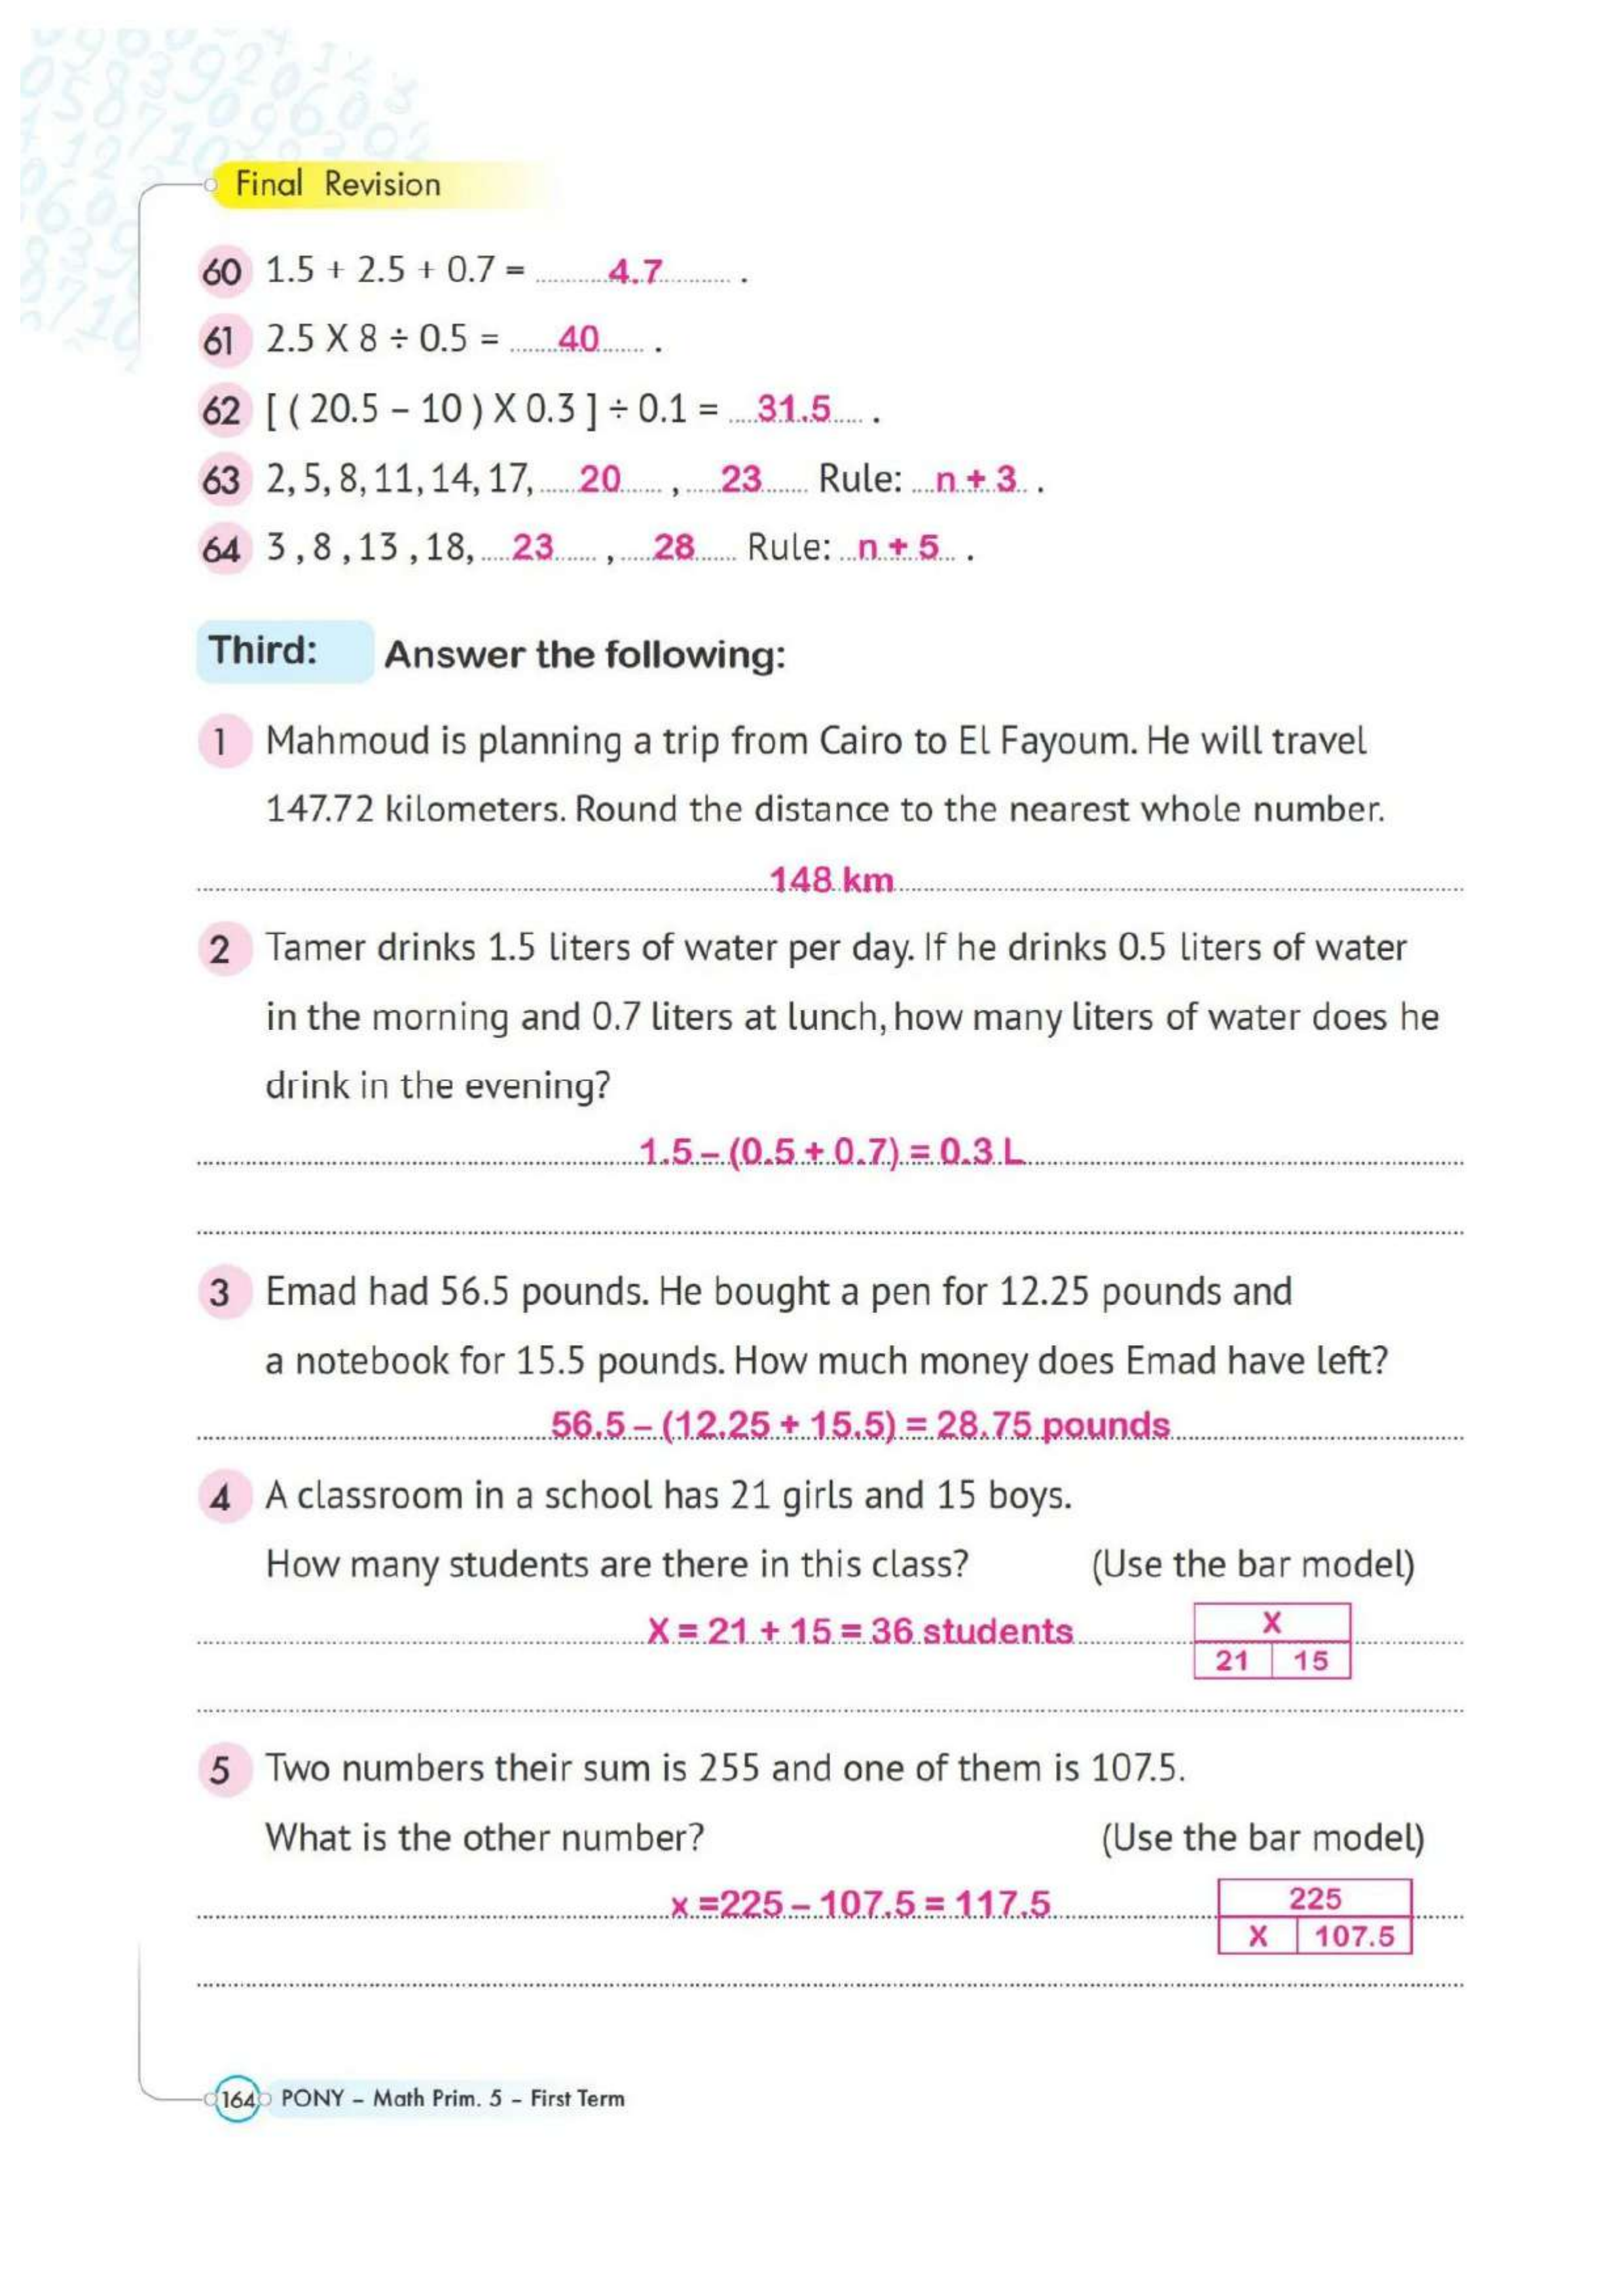 Final Revision
60 1.5 + 2.5 + 0.7 = 4.7 .
61 2.5 X 8 ÷ 0.5 = 40 .
62 [ ( 20.5 – 10 ) X 0.3 ] ÷ 0.1 = 31.5 .
63 2, 5, 8, 11, 14, 17, 20 , 23 Rule: n + 3 .
64 3 , 8 , 13 , 18, 23 , 28 Rule: n + 5 .
Third: Answer the following:
1 Mahmoud is planning a trip from Cairo to El Fayoum. He will travel
147.72 kilometers. Round the distance to the nearest whole number.
148 km
2 Tamer drinks 1.5 liters of water per day. If he drinks 0.5 liters of water
in the morning and 0.7 liters at lunch, how many liters of water does he
drink in the evening?
1.5 – (0.5 + 0.7) = 0.3 L
3 Emad had 56.5 pounds. He bought a pen for 12.25 pounds and
a notebook for 15.5 pounds. How much money does Emad have left?
56.5 – (12.25 + 15.5) = 28.75 pounds
4 A classroom in a school has 21 girls and 15 boys.
How many students are there in this class? (Use the bar model)
X = 21 + 15 = 36 students
X
21 15
5 Two numbers their sum is 255 and one of them is 107.5.
What is the other number? (Use the bar model)
x =225 – 107.5 = 117.5
225
X 107.5
164 PONY – Math Prim. 5 – First Term